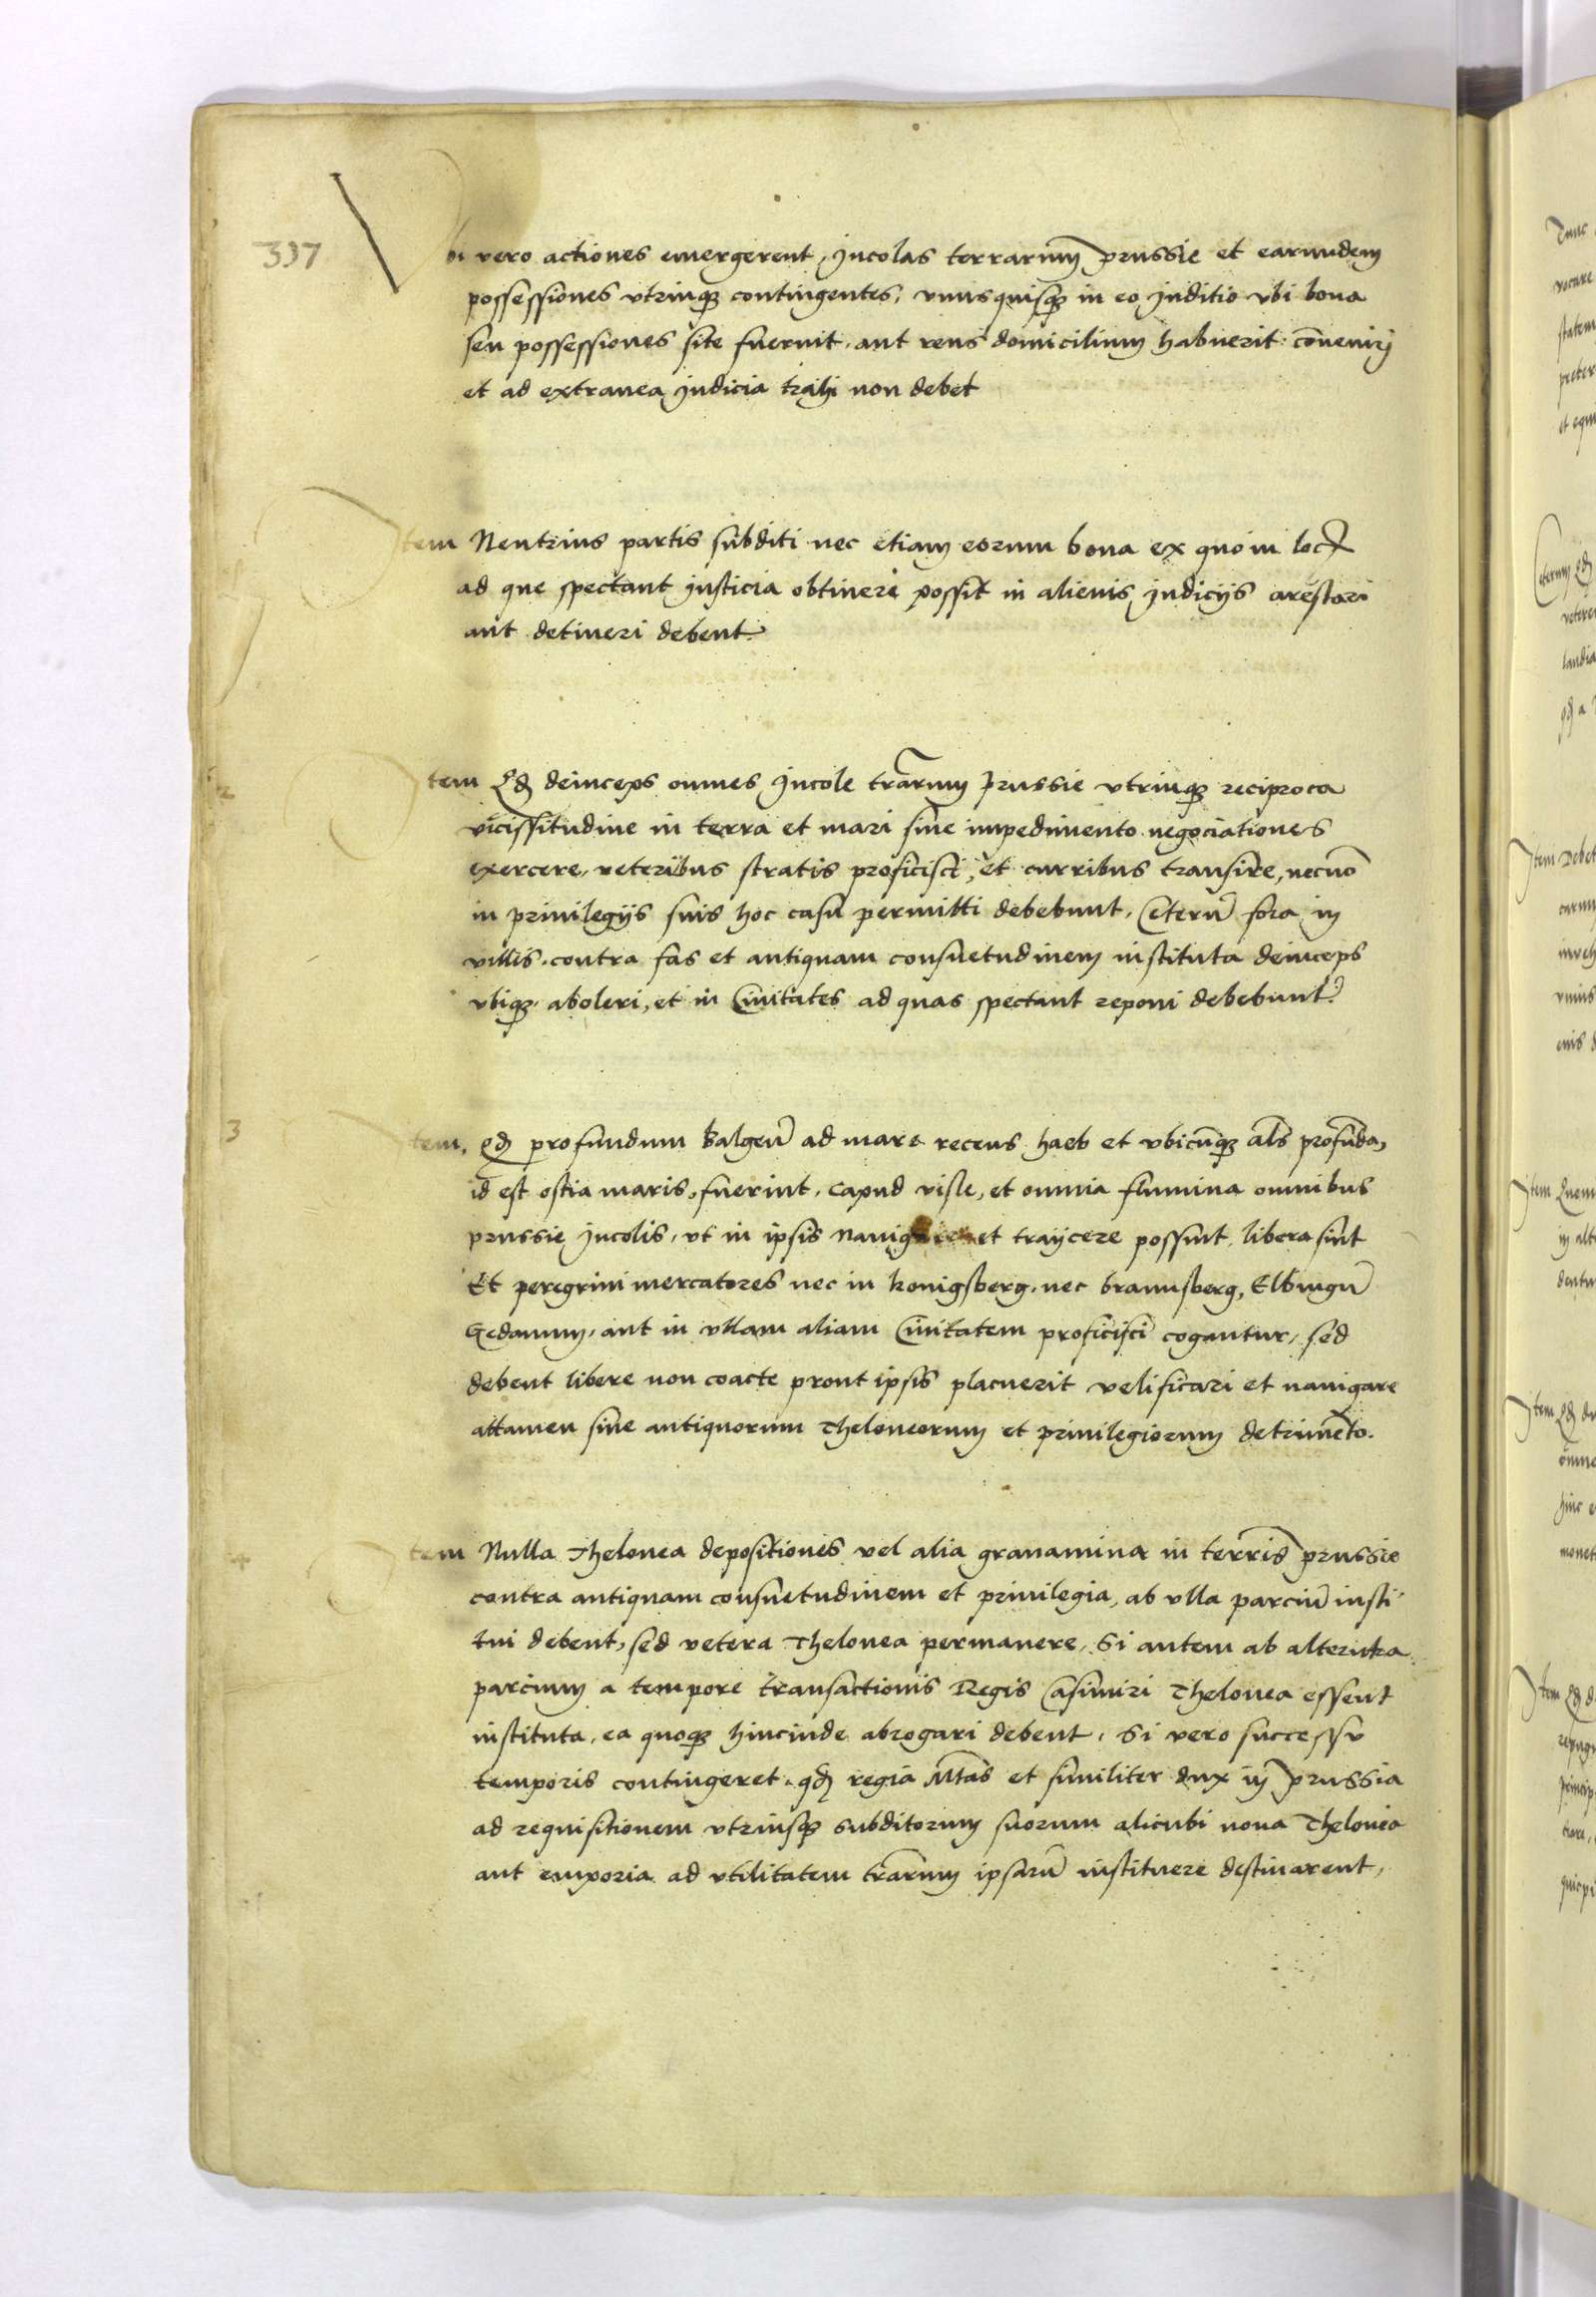 337
Vbi vero actiones emergerent, Jncolas terrarum prussie et earundem
possessiones vtrinqꝫ contingentes, vnusquisqꝫ in eo Juditio vbi bona
seu possessiones site fuerint, aut reus domicilium habuerit: cōveniri
et ad extranea Judicia trahi non debet
Item Neutrius partis subditi nec etiam eorum bona ex quo in locꝭ
ad que spectant Justicia obtineri possit in alienis Judicijs arestari
aut detineri debent
2
Item Qđ deinceps omnes Jncole tr̄arum Prussie vtrinqꝫ reciproca
vicissitudine in terra et mari sine impedimento negociationes
exercere, veteribus stratis proficisci, et curribus transire, necnō
in priuilegijs suis hoc casu permitti debebunt, Ceterū fora in
villis contra fas et antiquam consuetudinem instituta deinceps
vbiqꝫ aboleri, et in Ciuitates ad quas spectant reponi debebunt
3
Item, qđ profundum Balgeū ad mare recens haeb et vbicūqꝫ al̄s profūda,
id est ostia maris, fuerint, Capud visle, et omnia flumina omnibus
prussie Jncolis, vt in ipsis nauigare et traijcere possint, libera sint
Et peregrini mercatores nec in konigsberg, nec braunsberg, Elbingū
Gedanum, aut in vllam aliam Ciuitatem proficisci cogantur, sed
debent libere non coacte prout ipsis placuerit velificari et nauigare
attamen sine antiquorum Theloneorum et priuilegiorum detrimēto.
4
Item Nulla Thelonea depositiones vel alia grauamina in terris prussie
contra antiquam consuetudinem et priuilegia, ab vlla parciū insti
tui debent, sed vetera Thelonea permanere, Si autem ab alterutra
parcium a tempore transactionis Regis Casimiri Thelonea essent
instituta, ea quoqꝫ hincinde abrogari debent, Si vero successu
temporis contingeret, qđ regia Mtas et similiter dux in prussia
ad requisitionem vtriusqꝫ subditorum suorum alicubi noua Thelonea
aut emporia ad vtilitatem tr̄arum ipsarū instituere destinarent,